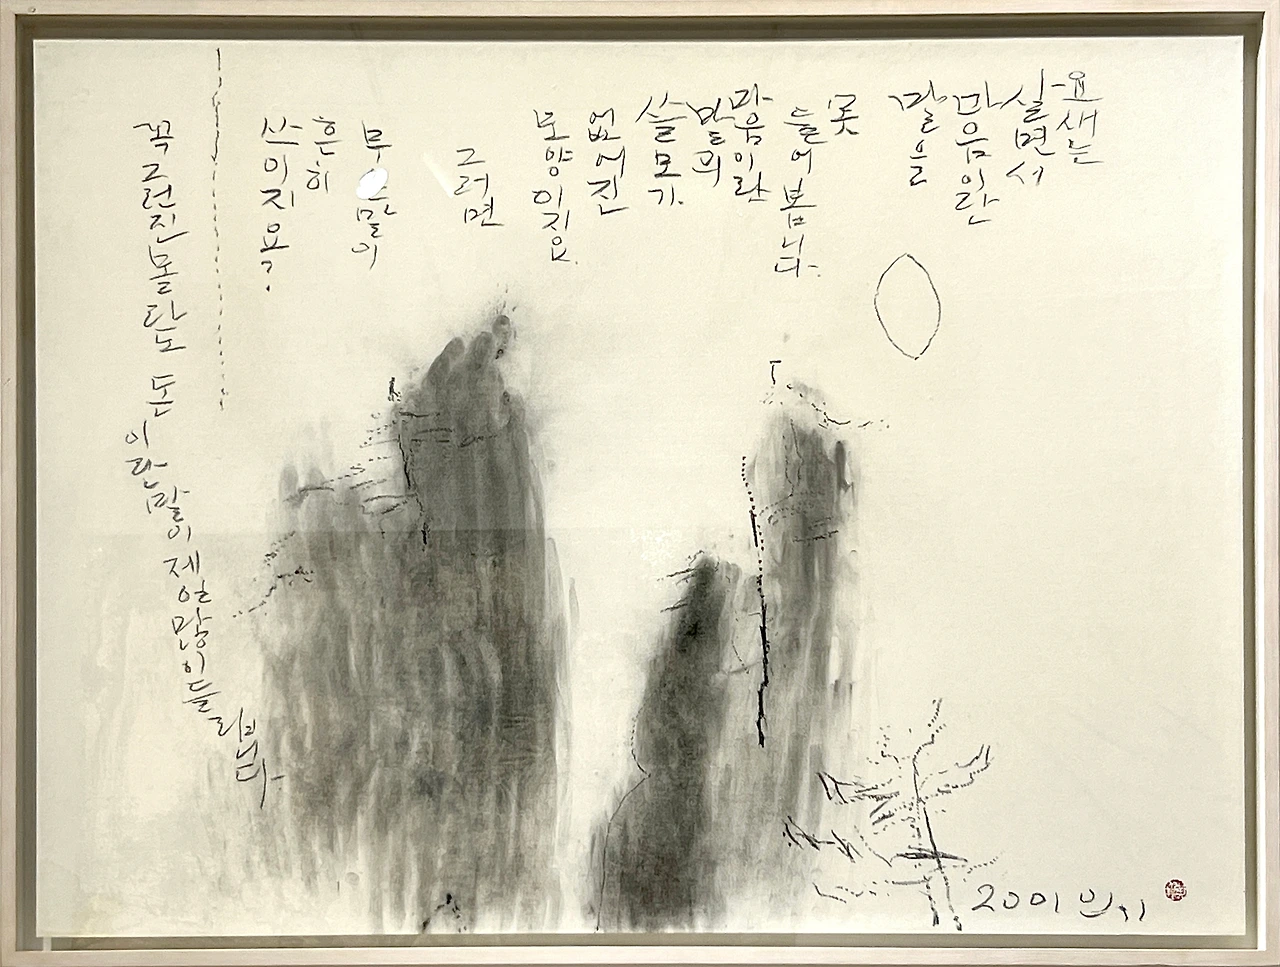 요새는
살면서
마음이란
말을
못
들어봅니다.
마음이란
말의
쓸모가
없어진
모양이지요.
그러면
무슨말이
흔히
쓰이지요?
꼭그런진몰라도 돈이란말이제일많이들립니다
2001